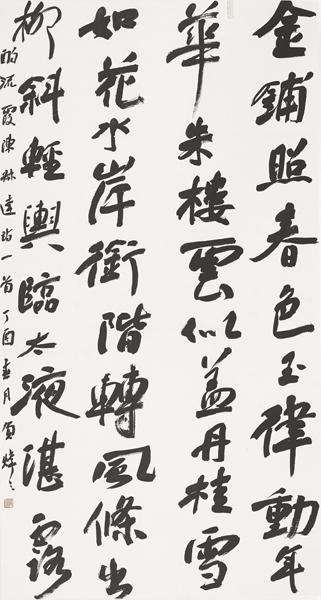 金鋪照春色玉律動年
華朱樓雲似蓋丹桂雪
如花水岸銜階轉風條出
柳斜輕輿臨太液湛露
酌流霞陳叔達詩一首丁酉春月